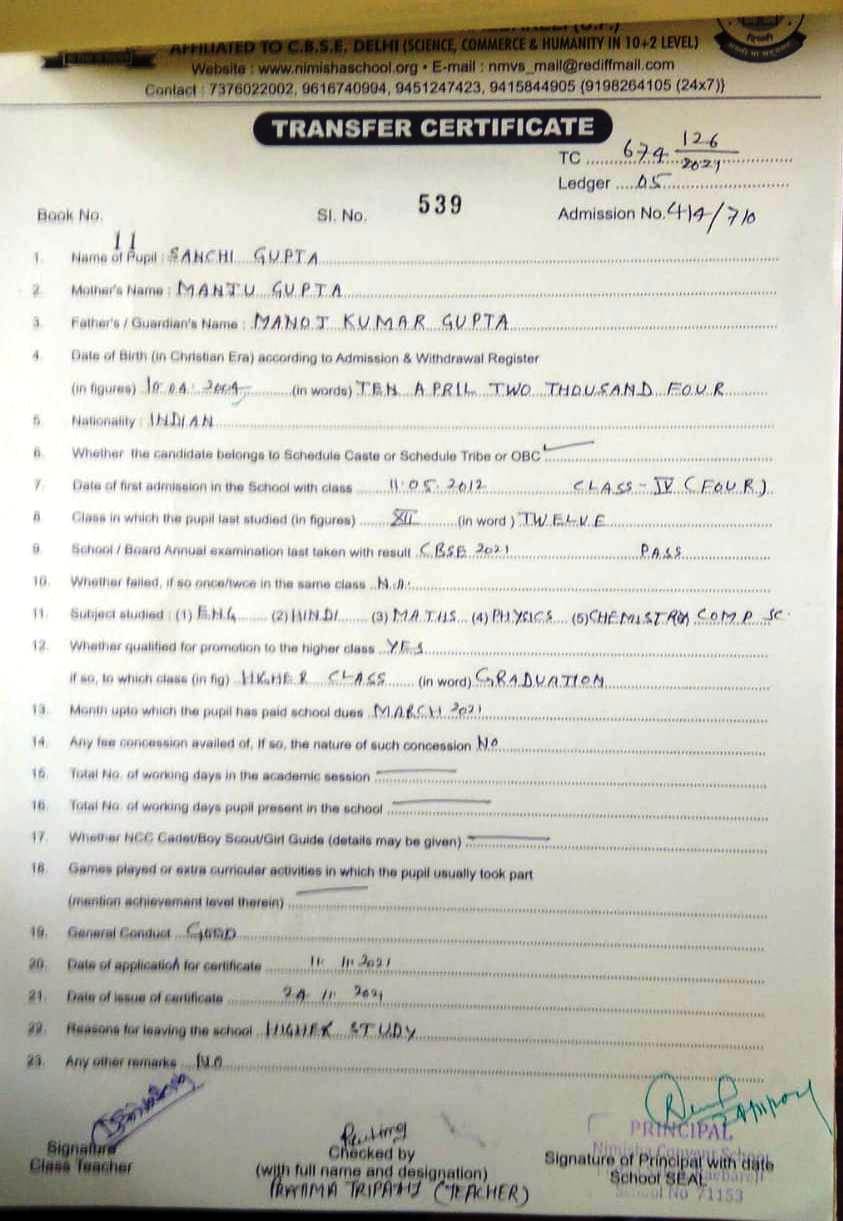 AFFILIATED TO C.B.S.E, DELHI (SCIENCE, COMMERCE & HUMANITY IN 10+2 LEVEL)
Website : www.nimishaschool.org • E-mail : nmvs_mail@rediffmail.com
Contact : 7376022002, 9616740994, 9451247423, 9415844905 (9198264105 (24x7)}
TRANSFER CERTIFICATE
TC 674 126/2021
Ledger 05
Book No. 11 Sl. No. 539 Admission No. 414/710
1. Name of Pupil : SANCHI GUPTA
2. Mother's Name : MANJU GUPTA
3. Father's / Guardian's Name : MANOJ KUMAR GUPTA
4. Date of Birth (in Christian Era) according to Admission & Withdrawal Register
(in figures) 10.04.2004 (in words) TEN APRIL TWO THOUSAND FOUR
5. Nationality : INDIAN
6. Whether the candidate belongs to Schedule Caste or Schedule Tribe or OBC
7. Date of first admission in the School with class 11.05.2012 CLASS - IV (FOUR)
8. Class in which the pupil last studied (in figures) XII (in word ) TWELVE
9. School / Board Annual examination last taken with result CBSE 2021 PASS
10. Whether failed, if so once/twce in the same class N.A.
11. Subject studied : (1) ENG (2) HINDI (3) MATHS (4) PHYSICS (5) CHEMISTRY COMP SC.
12. Whether qualified for promotion to the higher class YES
if so, to which class (in fig) HIGHER CLASS (in word) GRADUATION
13. Month upto which the pupil has paid school dues MARCH 2021
14. Any fee concession availed of, If so, the nature of such concession NO
15. Total No. of working days in the academic session
16. Total No. of working days pupil present in the school
17. Whether NCC Cadet/Boy Scout/Girl Guide (details may be given)
18. Games played or extra curricular activities in which the pupil usually took part
(mention achievement level therein)
19. General Conduct GOOD
20. Date of application for certificate 11.11.2021
21. Date of issue of certificate 24.11.2021
22. Reasons for leaving the school HIGHER STUDY
23. Any other remarks NO
Signature
Class Teacher
Checked by
(with full name and designation)
PRATIMA TRIPATHI (TEACHER)
PRINCIPAL
Nimisha Convent School
Signature of Principal with date
School SEAL
School No 71153